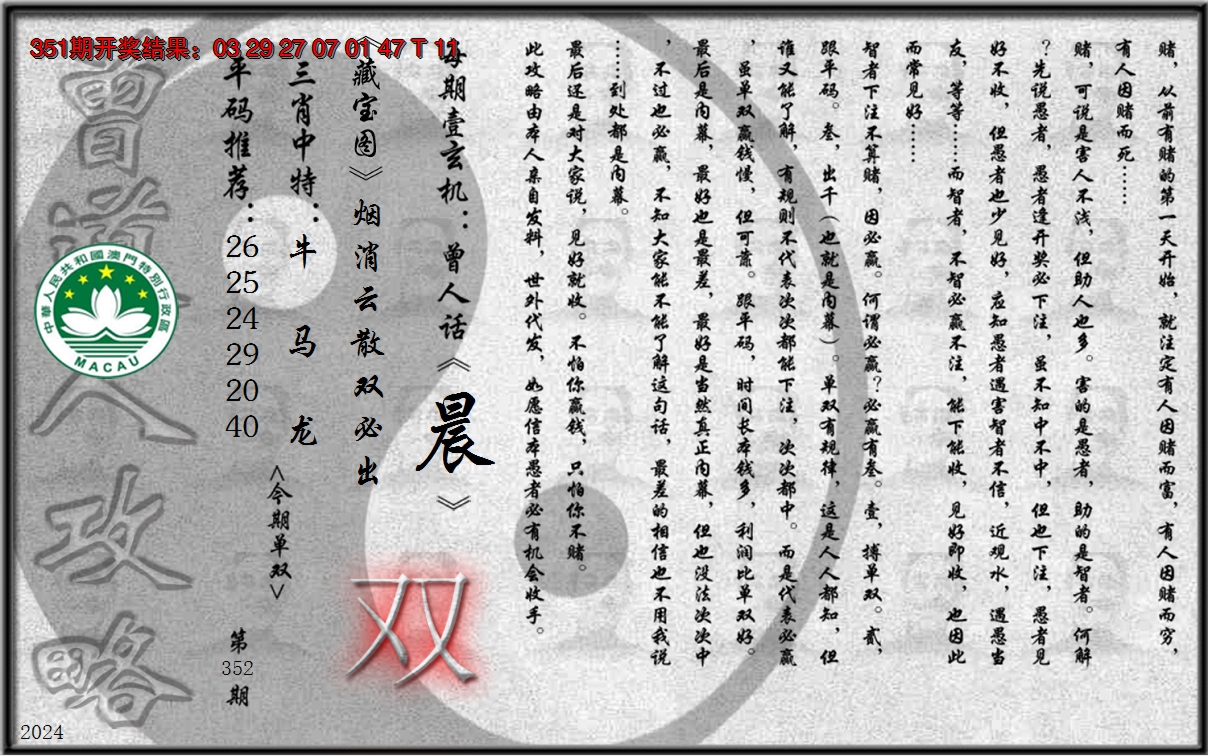 351期开奖结果：03 29 27 07 01 47 T 11
赌，从前有赌的第一天开始，就注定有人因赌而富，有人因赌而穷，
有人因赌而死……
赌，可说是害人不浅，但助人也多。害的是愚者，助的是智者。何解
？先说愚者，愚者逢开奖必下注，虽不知中不中，但也下注，愚者见
好不收，但愚者也少见好，应知愚者遇害智者不信，近观水，遇愚当
友，等等……而智者，不智必赢不注，能下能收，见好即收，也因此
而常见好……
智者下注不算赌，因必赢。何谓必赢？必赢有叁。壹，搏单双。贰，
跟平码。叁，出千（也就是内幕）。单双有规律，这是人人都知，但
谁又能了解，有规则不代表次次都能下注，次次都中。而是代表必赢
，虽单双赢钱慢，但可靠。跟平码，时间长本钱多，利润比单双好。
最后是内幕，最好也是最差，最好是当然真正内幕，但也没法次次中
，不过也必赢，不知大家能不能了解这句话，最差的相信也不用我说
……到处都是内幕。
最后还是对大家说，见好就收。不怕你赢钱，只怕你不赌。
此攻略由本人亲自发料，世外代发，如愿信本愚者必有机会收手。
每期壹玄机：曾人话《晨》
《藏宝图》烟消云散双必出
双
三肖中特：牛 马 龙
<今期单双>
平码推荐：
26
25
24
29
20
40
第
352
期
曾道人攻略
中華人民共和國澳門特別行政區
MACAU
2024